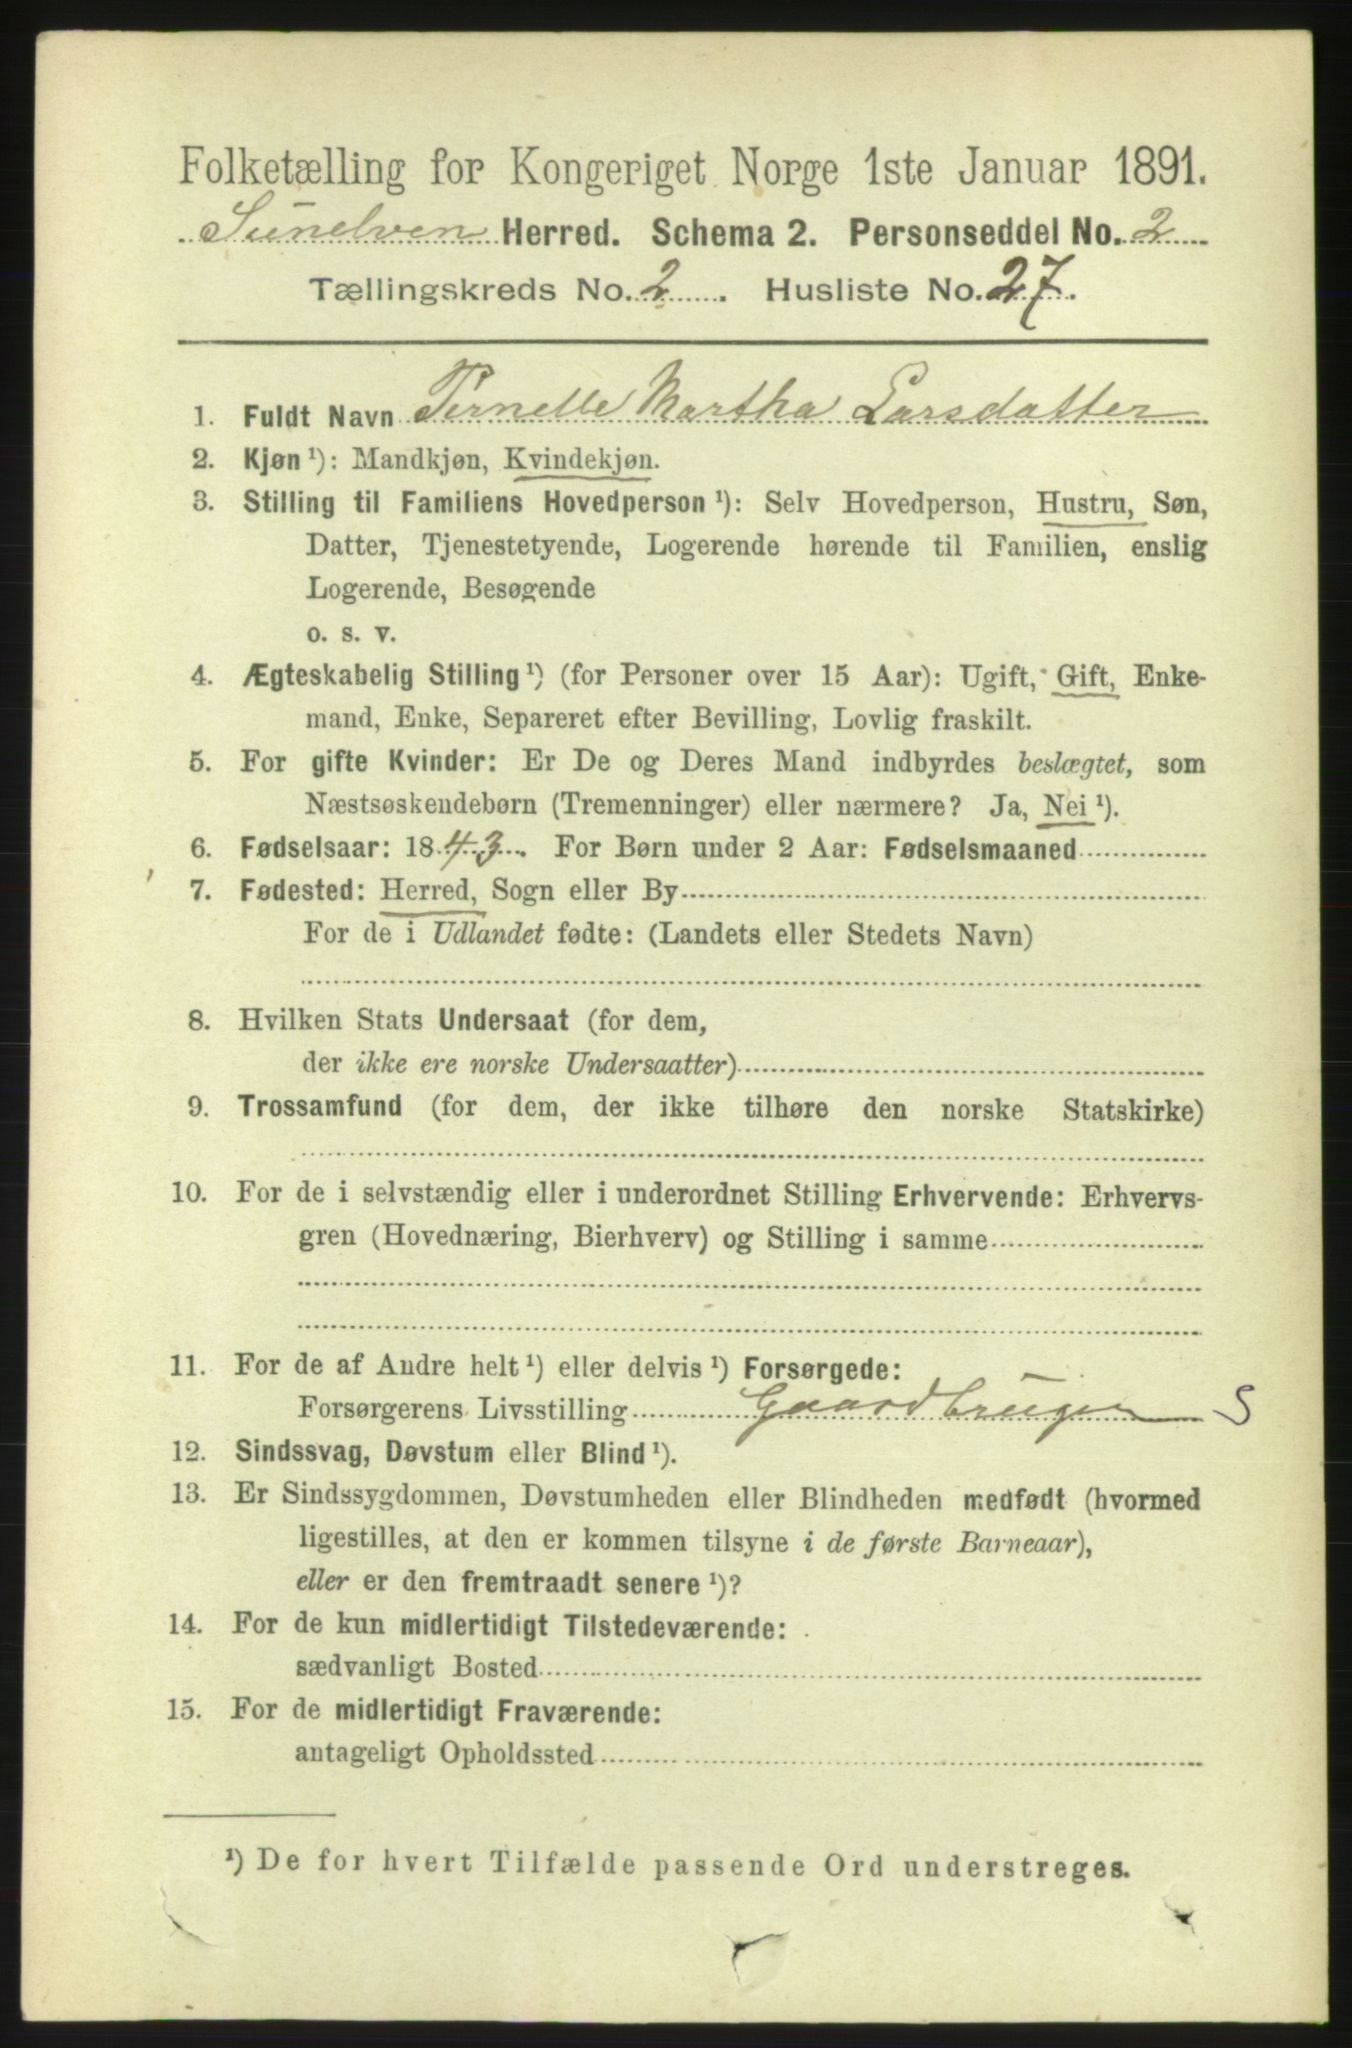 Folketælling for Kongeriget Norge 1ste Januar 1891.
Sunelven Herred. Schema 2. Personseddel No. 2
Tællingskreds No. 2. Husliste No. 27.
1. Fuldt Navn Pernelle Martha Larsdatter
2. Kjøn ¹): Mandkjøn, Kvindekjøn.
3. Stilling til Familiens Hovedperson ¹): Selv Hovedperson, Hustru, Søn,
Datter, Tjenestetyende, Logerende hørende til Familien, enslig
Logerende, Besøgende
o. s. v.
4. Ægteskabelig Stilling ¹) (for Personer over 15 Aar): Ugift, Gift, Enke-
mand, Enke, Separeret efter Bevilling, Lovlig fraskilt.
5. For gifte Kvinder: Er De og Deres Mand indbyrdes beslægtet, som
Næstsøskendebørn (Tremenninger) eller nærmere? Ja, Nei ¹).
6. Fødselsaar: 1843. For Børn under 2 Aar: Fødselsmaaned
7. Fødested: Herred, Sogn eller By
For de i Udlandet fødte: (Landets eller Stedets Navn)
8. Hvilken Stats Undersaat (for dem,
der ikke ere norske Undersaatter)
9. Trossamfund (for dem, der ikke tilhøre den norske Statskirke)
10. For de i selvstændig eller i underordnet Stilling Erhvervende: Erhvervs-
gren (Hovednæring, Bierhverv) og Stilling i samme
11. For de af Andre helt ¹) eller delvis ¹) Forsørgede:
Forsørgerens Livsstilling Gaardbruger S
12. Sindssvag, Døvstum eller Blind ¹).
13. Er Sindssygdommen, Døvstumheden eller Blindheden medfødt (hvormed
ligestilles, at den er kommen tilsyne i de første Barneaar),
eller er den fremtraadt senere ¹)?
14. For de kun midlertidigt Tilstedeværende:
sædvanligt Bosted
15. For de midlertidigt Fraværende:
antageligt Opholdssted
¹) De for hvert Tilfælde passende Ord understreges.